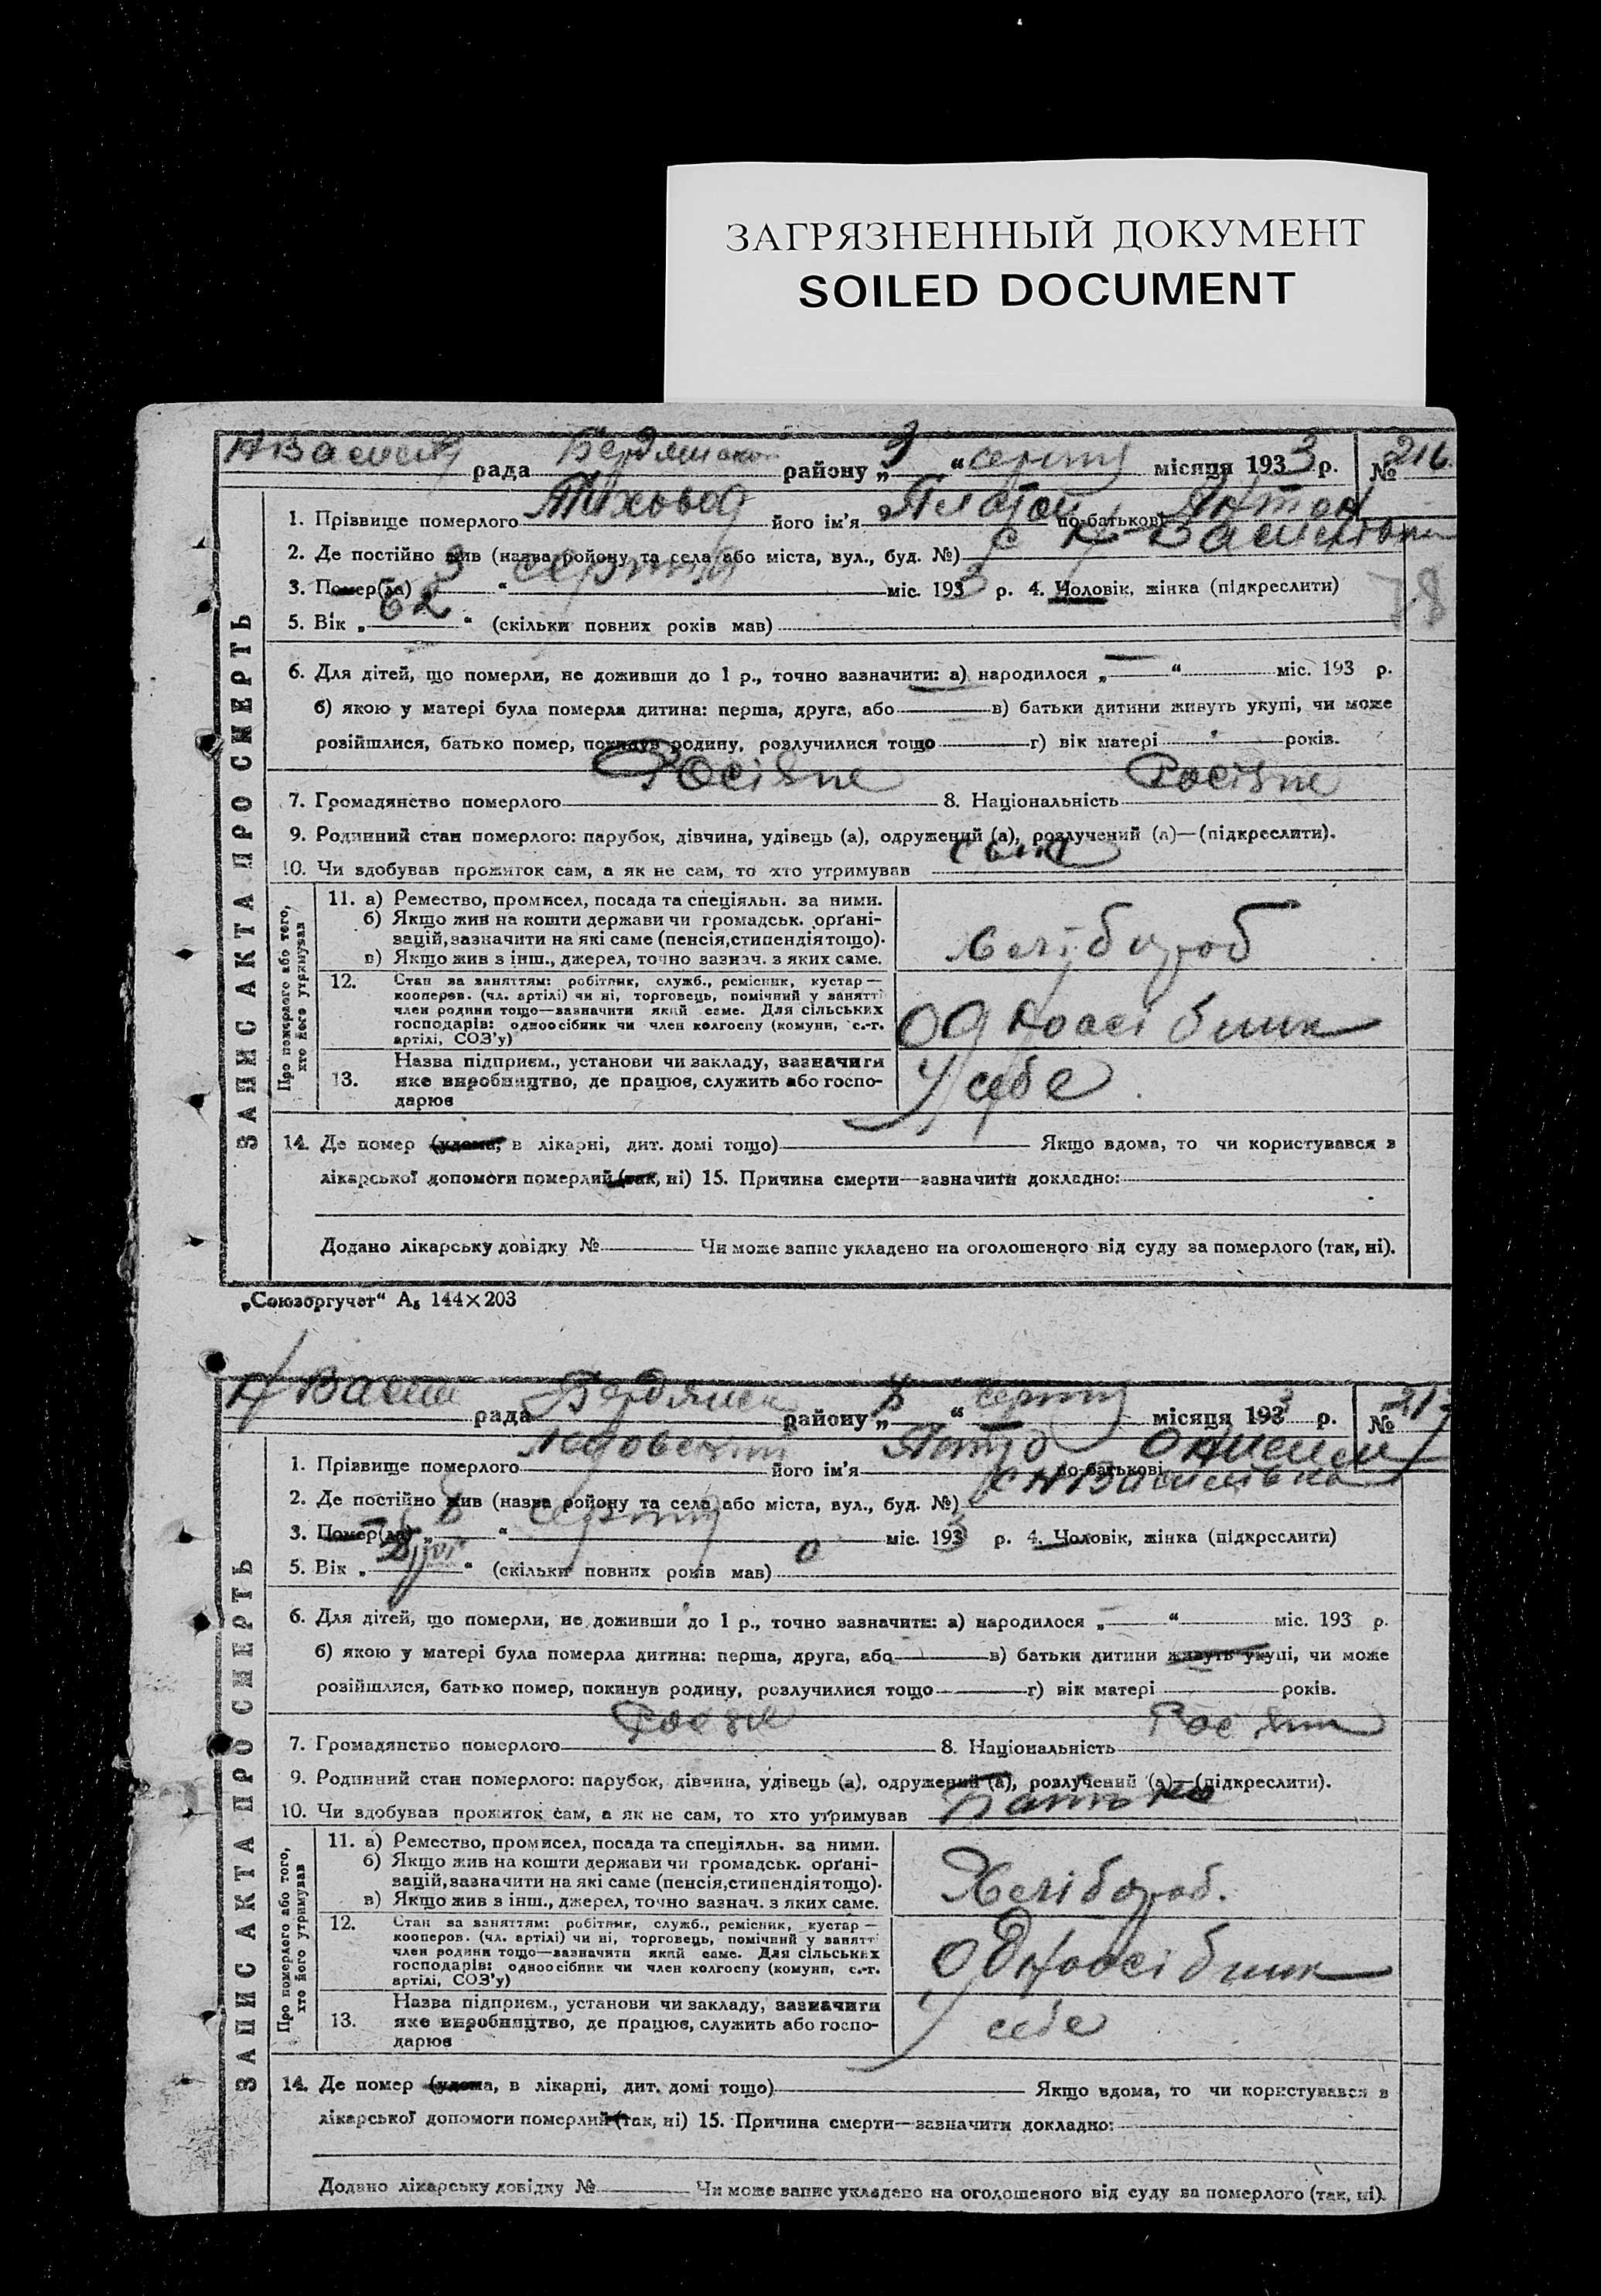 ЗАГРЯЗНЕННЫЙ ДОКУМЕНТ
SOILED DOCUMENT
рада Бердянськ району „3“ серпня місяця 1933 р. № 216
ЗАПИС АКТА ПРО СМЕРТЬ
1. Прізвище померлого його ім'я Платон по-батькові Антон
2. Де постійно жив (назва району та села або міста, вул., буд. №) с Н-Василівки
3. Помер(ла) „3“ серпня міс. 1933 р. 4. Чоловік, жінка (підкреслити)
78
5. Вік „62“ (скільки повних років мав)
6. Для дітей, що померли, не доживши до 1 р., точно зазначити: а) народилося „ “ міс. 193 р.
б) якою у матері була померла дитина: перша, друга, або в) батьки дитини живуть укупі, чи може
розійшлися, батько помер, покинув родину, розлучилися тощо г) вік матері років.
7. Громадянство померлого Росіяне 8. Національність Росіяне
9. Родинний стан померлого: парубок, дівчина, удівець (а), одружений (а), розлучений (а)—(підкреслити).
10. Чи здобував прожиток сам, а як не сам, то хто утримував
Про померлого або того, хто його утримував
11. а) Ремество, промисел, посада та спеціяльн. за ними.
б) Якщо жив на кошти держави чи громадськ. орґані-
зацій, зазначити на які саме (пенсія, стипендія тощо).
в) Якщо жив з інш., джерел, точно зазнач. з яких саме.
хлібороб
12. Стан за заняттям: робітник, служб., ремісник, кустар—
кооперов. (чл. артілі) чи ні, торговець, помічний у занятті
член родини тощо—зазначити який саме. Для сільських
господарів: одноосібник чи член колгоспу (комуни, с.-г.
артілі, СОЗ'у)
одноосібник
13. Назва підприєм., установи чи закладу, зазначити
яке виробництво, де працює, служить або госпо-
дарює
У себе
14. Де помер (удома, в лікарні, дит. домі тощо) Якщо вдома, то чи користувався з
лікарської допомоги померлий (так, ні) 15. Причина смерти—зазначити докладно:
Додано лікарську довідку № Чи може запис укладено на оголошеного від суду за померлого (так, ні).
„Союзоргучет“ А₅ 144×203
рада Бердянськ району „8“ серпня місяця 1933 р. № 217
ЗАПИС АКТА ПРО СМЕРТЬ
1. Прізвище померлого його ім'я по-батькові
2. Де постійно жив (назва району та села або міста, вул., буд. №) с Н Василівка
3. Помер(ла) „8“ серпня міс. 1933 р. 4. Чоловік, жінка (підкреслити)
5. Вік „ “ (скільки повних років мав)
6. Для дітей, що померли, не доживши до 1 р., точно зазначити: а) народилося „ “ міс. 193 р.
б) якою у матері була померла дитина: перша, друга, або в) батьки дитини живуть укупі, чи може
розійшлися, батько помер, покинув родину, розлучилися тощо г) вік матері років.
7. Громадянство померлого 8. Національність
9. Родинний стан померлого: парубок, дівчина, удівець (а), одружений (а), розлучений (а)—(підкреслити).
10. Чи здобував прожиток сам, а як не сам, то хто утримував Батько
Про померлого або того, хто його утримував
11. а) Ремество, промисел, посада та спеціяльн. за ними.
б) Якщо жив на кошти держави чи громадськ. орґані-
зацій, зазначити на які саме (пенсія, стипендія тощо).
в) Якщо жив з інш., джерел, точно зазнач. з яких саме.
Хлібороб.
12. Стан за заняттям: робітник, служб., ремісник, кустар—
кооперов. (чл. артілі) чи ні, торговець, помічний у занятті
член родини тощо—зазначити який саме. Для сільських
господарів: одноосібник чи член колгоспу (комуни, с.-г.
артілі, СОЗ'у)
одноосібник
13. Назва підприєм., установи чи закладу, зазначити
яке виробництво, де працює, служить або госпо-
дарює
У себе
14. Де помер (удома, в лікарні, дит. домі тощо) Якщо вдома, то чи користувався з
лікарської допомоги померлий (так, ні) 15. Причина смерти—зазначити докладно:
Додано лікарську довідку № Чи може запис укладено на оголошеного від суду за померлого (так, ні).